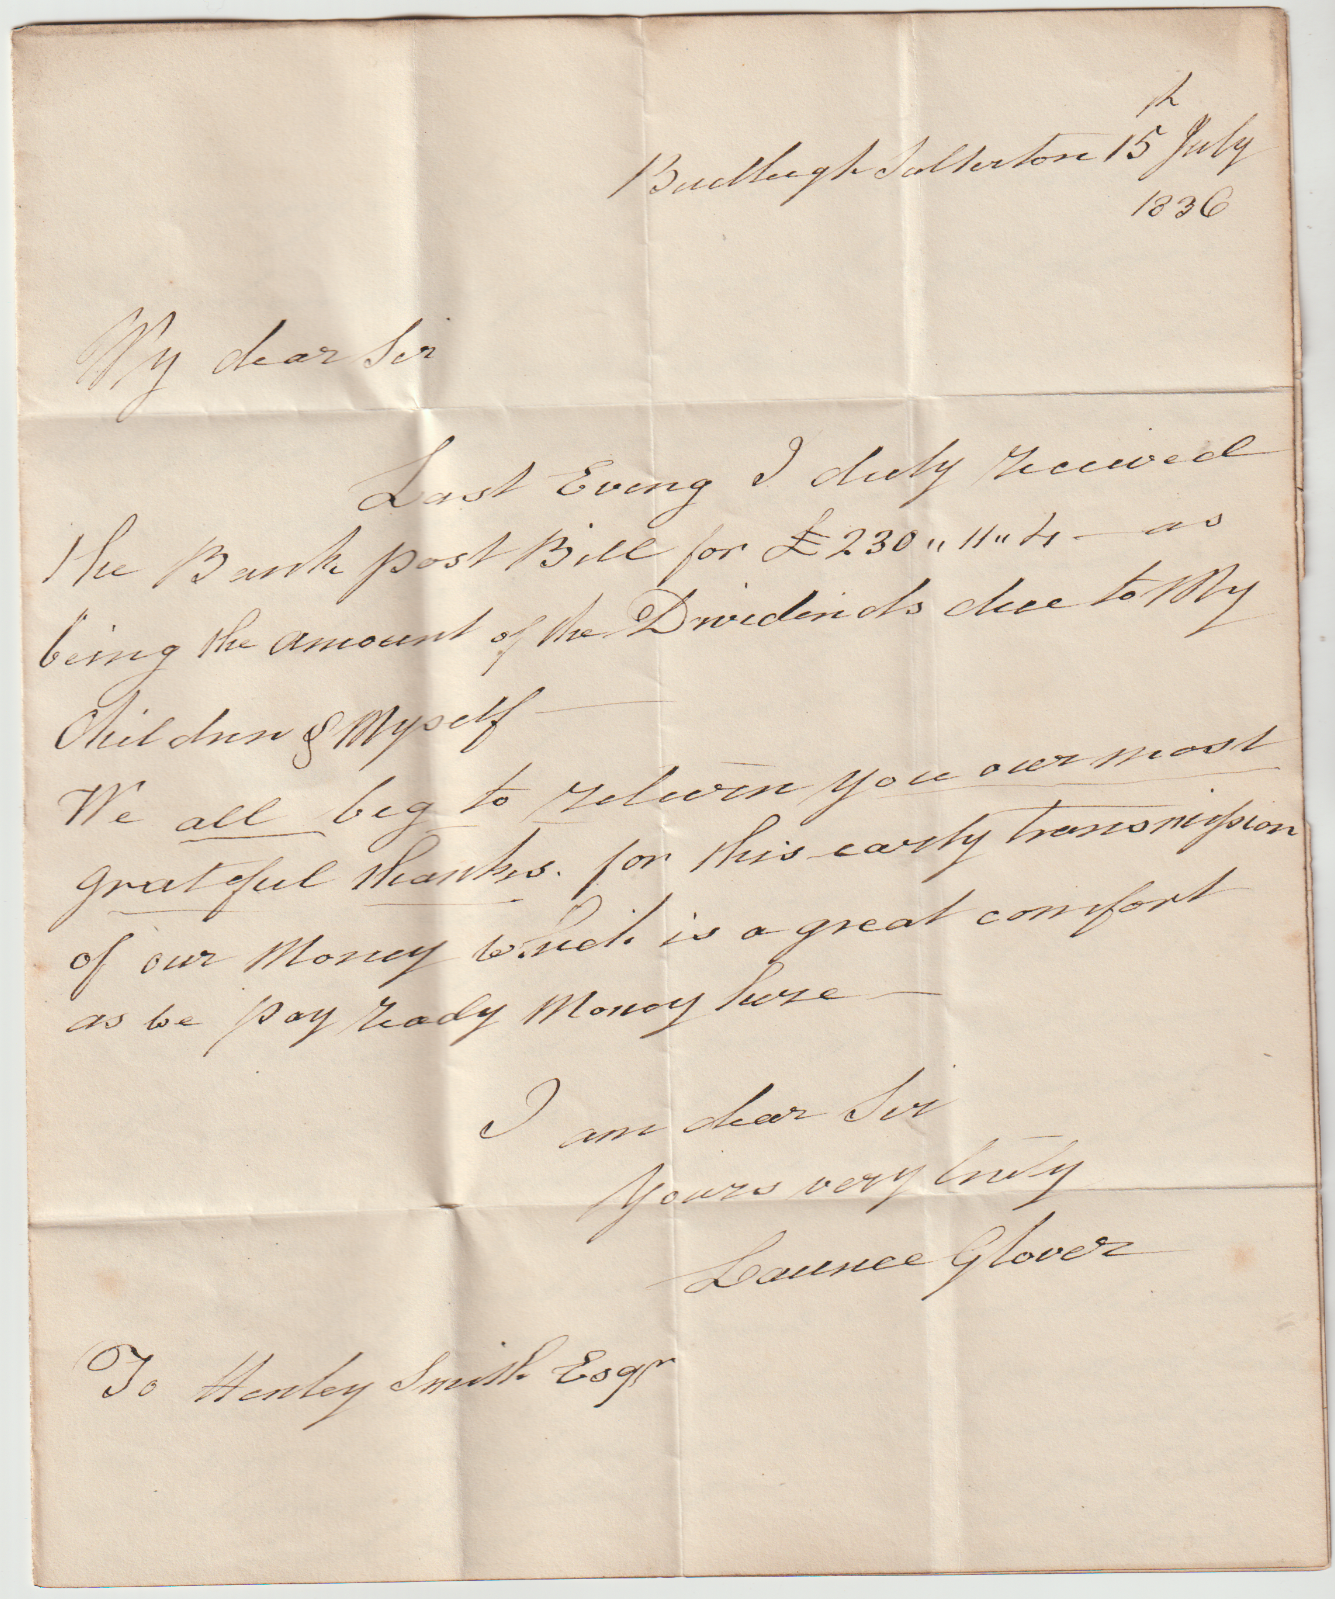 Budleigh Salterton 15th July
1836
My dear Sir
Last Eveng I duly received
the Bank post Bill for £230 ,, 11 ,, 4 — as
being the amount of the Dividends due to My
Children & Myself —
We all beg to return you our most
grateful thanks. for this early transmission
of our Money which is a great comfort
as we pay ready Money here —
I am dear Sir
Yours very truly
Glover
To Henley Smith Esqr